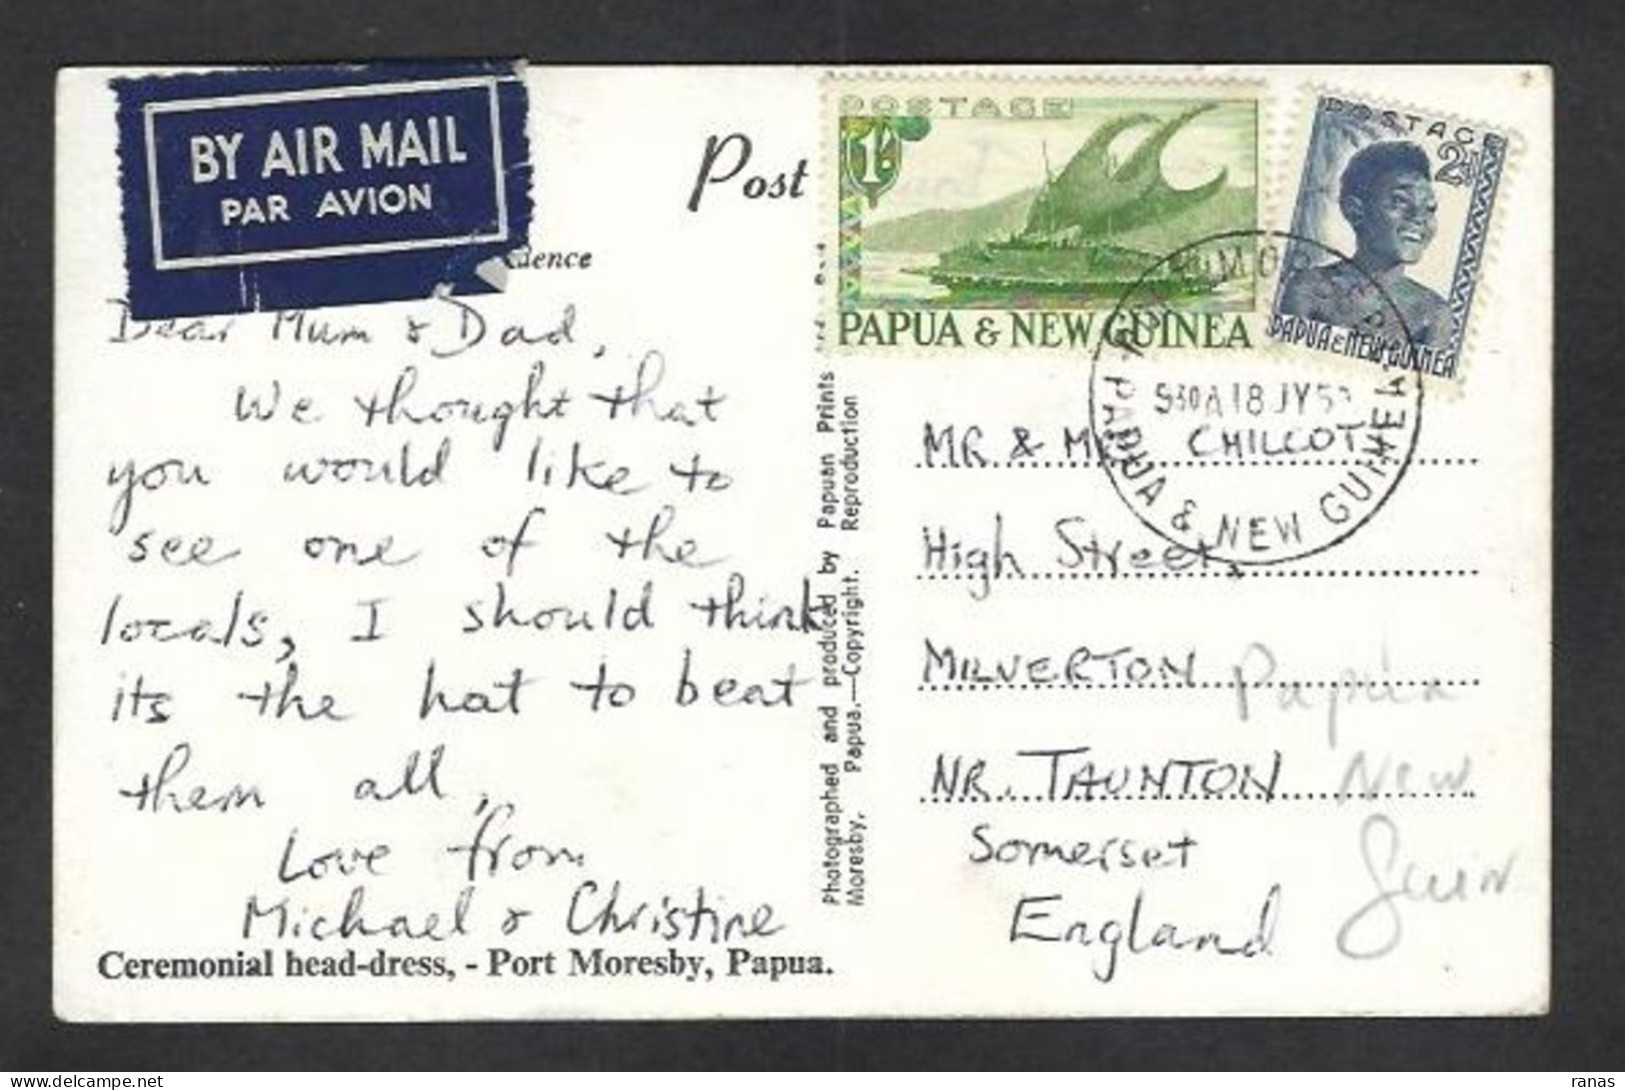 BY AIR MAIL
PAR AVION
Post
dence
POSTAGE
1/-
PAPUA & NEW GUINEA
POSTAGE
PAPUA & NEW GUINEA
930A 18 JY 5
PAPUA & NEW GUINEA
Dear Mum & Dad,
We thought that
you would like to
see one of the
locals, I should think
its the hat to beat
them all,
Love from
Michael & Christine
Ceremonial head-dress, - Port Moresby, Papua.
Photographed and produced by Papuan Prints
Moresby, Papua.—Copyright. Reproduction
MR & CHILCOT
High Street,
MILVERTON
NR. TAUNTON
Somerset
England
Papua
New
Guin
ranas